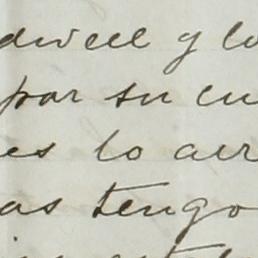 dwell y lo
por su cu
es lo arr
as tengo